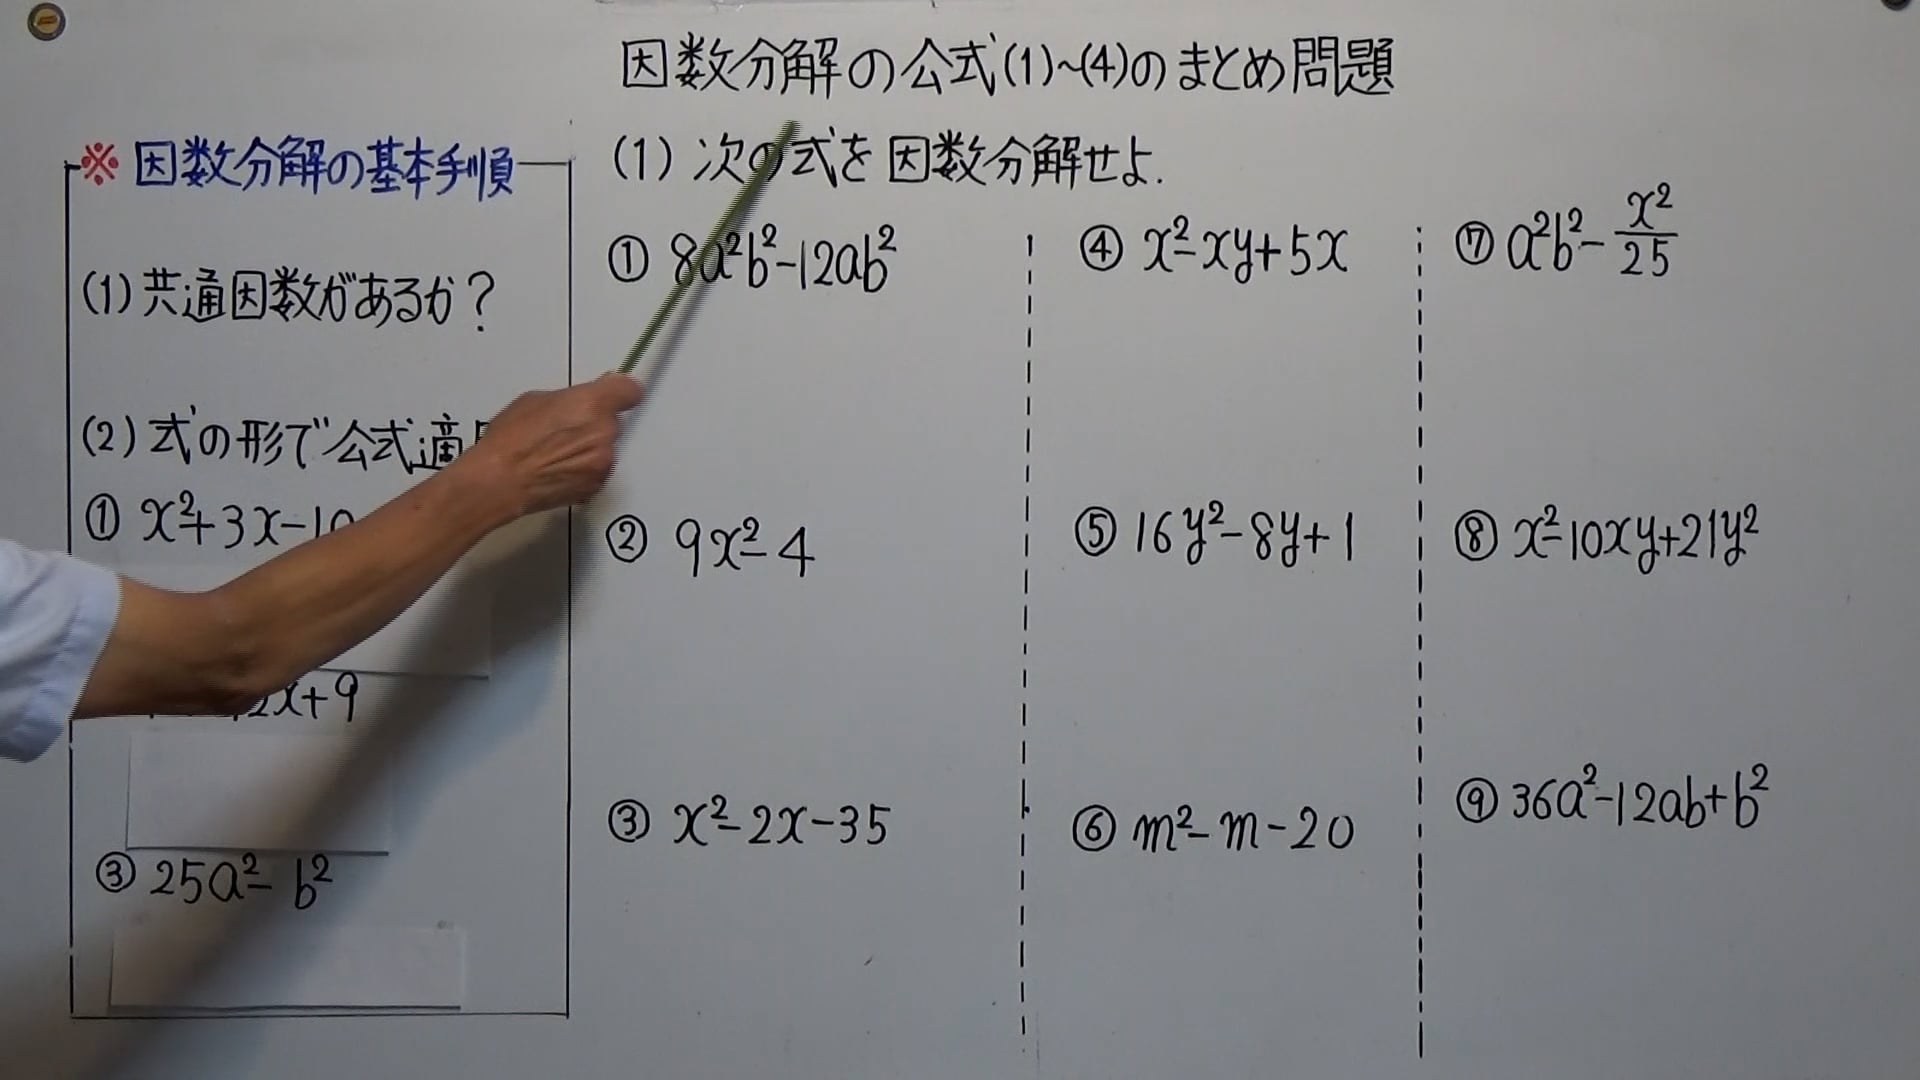 因数分解の公式(1)~(4)のまとめ問題
※ 因数分解の基本手順
(1) 共通因数があるか?
(2) 式の形で公式適
① x²+3x-10
2x+9
③ 25a²-b²
(1) 次の式を因数分解せよ.
① 8a²b²-12ab²
② 9x²-4
③ x²-2x-35
④ x²-xy+5x
⑤ 16y²-8y+1
⑥ m²-m-20
⑦ a²b²-x²/25
⑧ x²-10xy+21y²
⑨ 36a²-12ab+b²